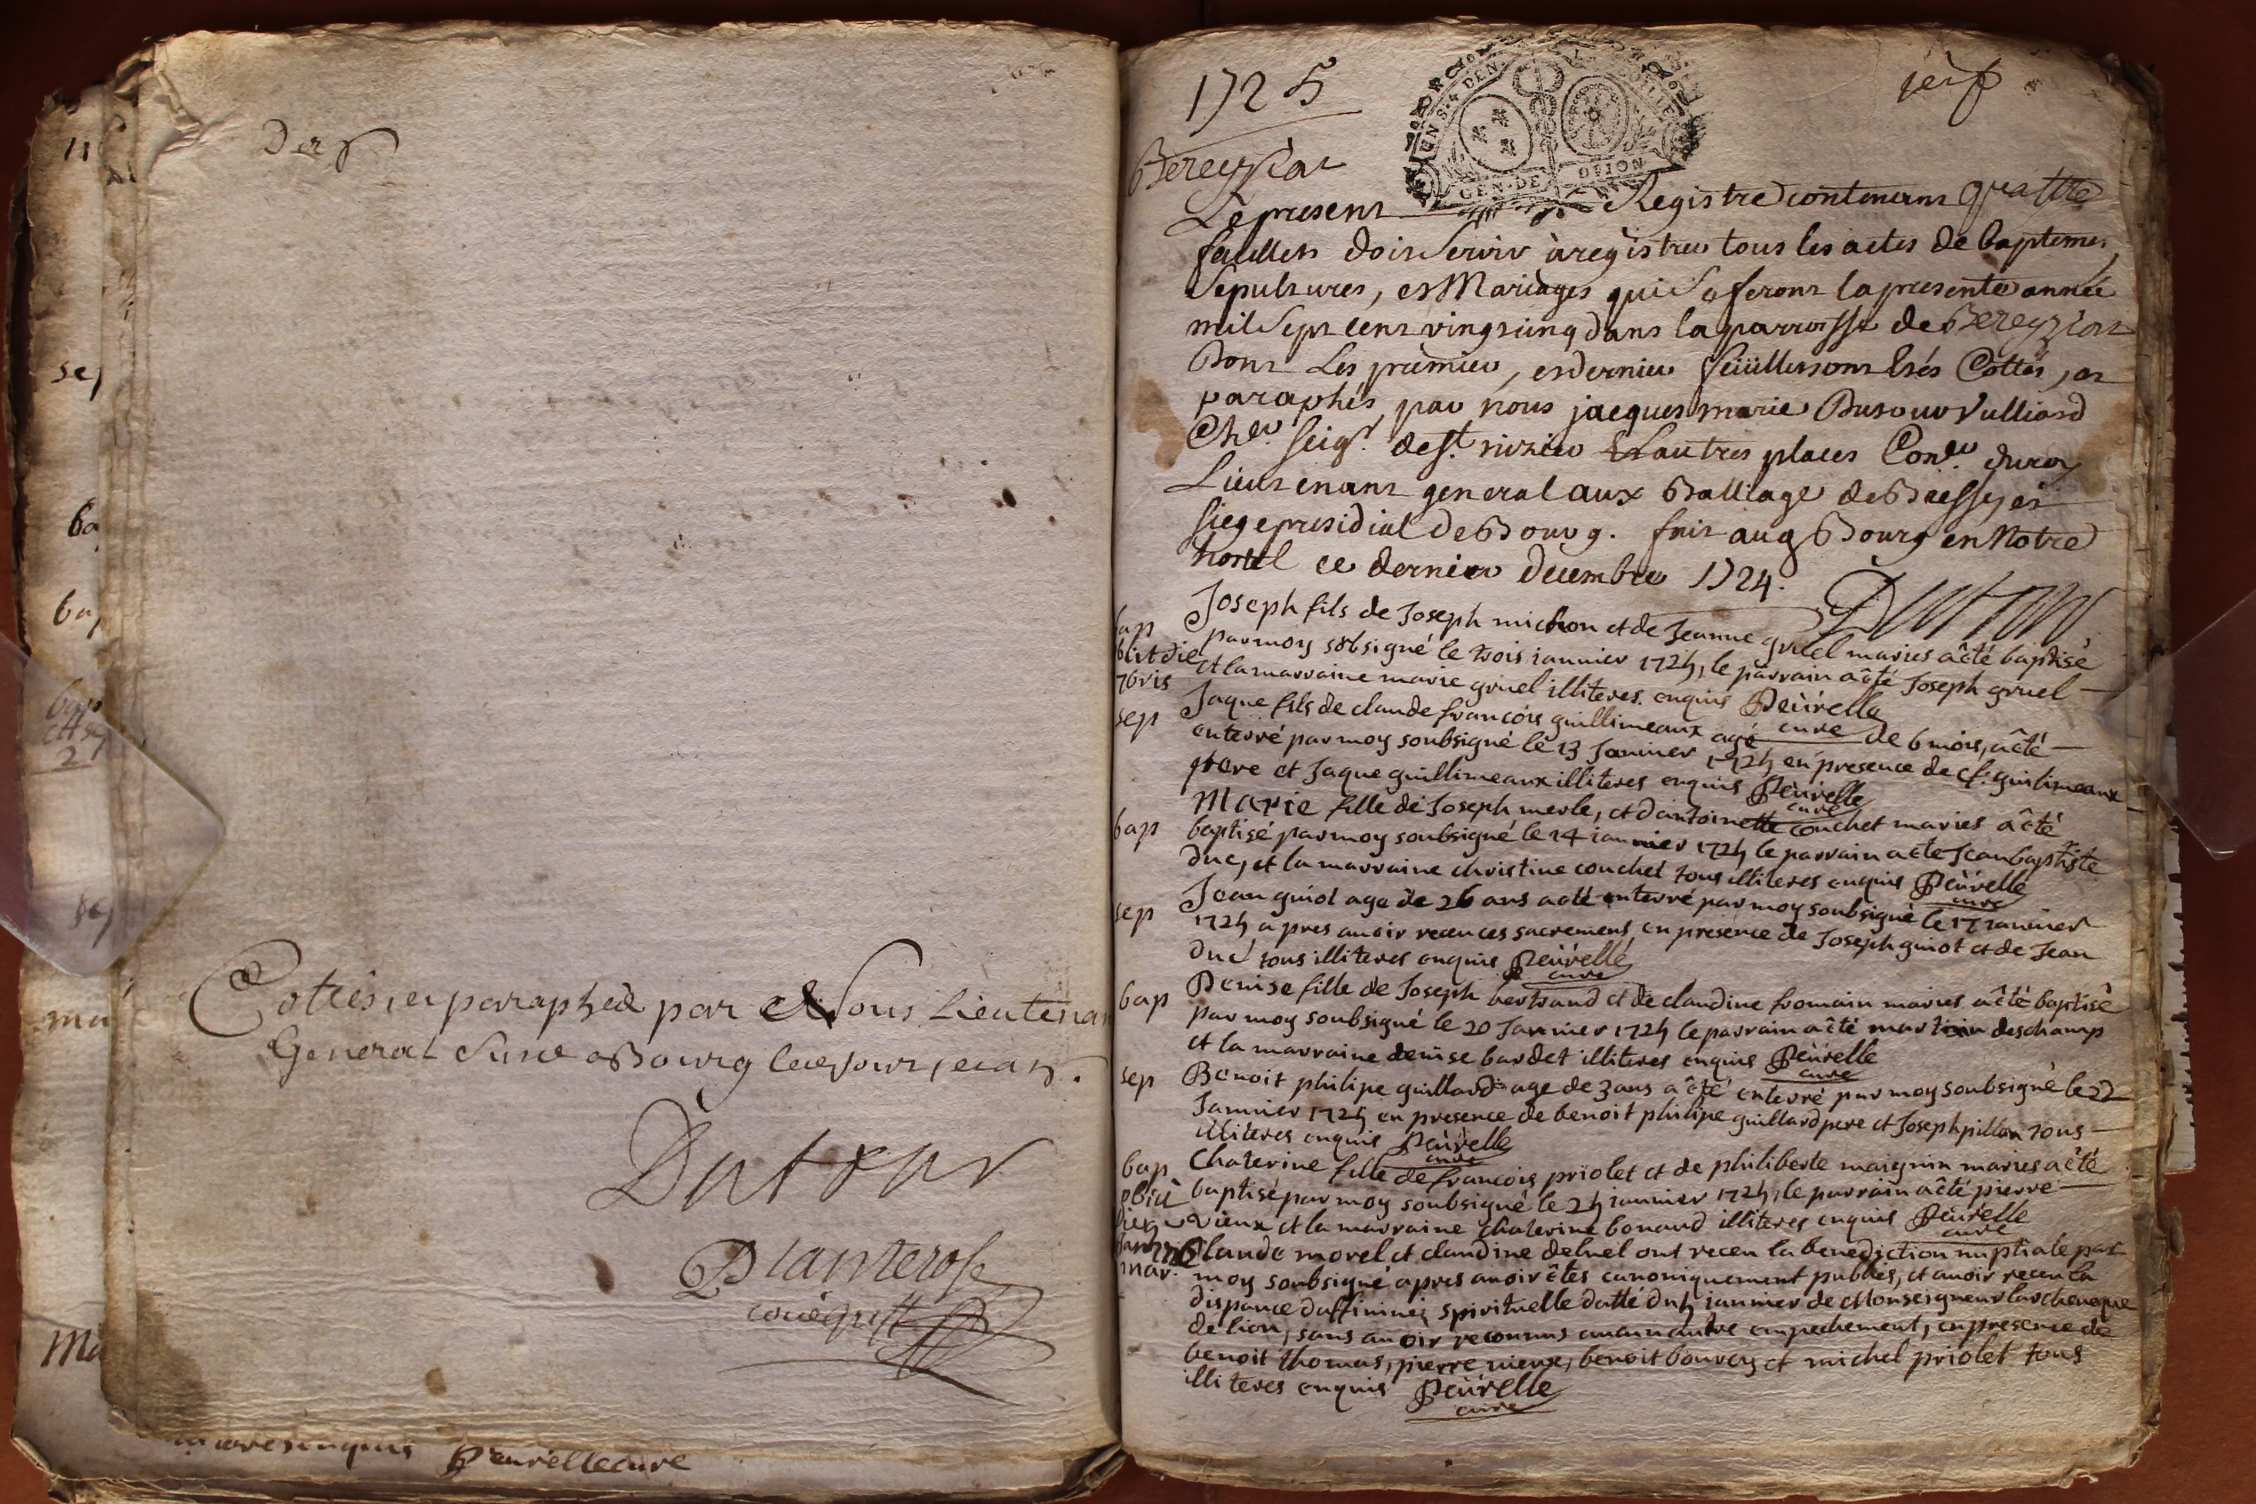 Der
Cottés, et paraphés par Nous Lieutenant
General susd a Bourg lesd jour, et an.
Dutour
Planterose
P eurelle cure
1725
GEN. DE DIJON
Bereyziat
Le present Registre contenant quattre
feuillets doit servir à registrer tous les actes de baptemes,
sepultures, et Mariages qui se feront la presente année
mil sept cent vingt cinq dans la parroisse de Bereyziat
Dont Les premier, et dernier feüillet sont Cottés, et
paraphés par nous jacques marie Dutour Vulliard
Cher seigr de st nizier et autres places Coner du roy
Lieutenant general aux Balliage de Bresse, et
siege presidial de Bourg. fait aud Bourg en Notre
hostel ce dernier decembre 1724.
Dutour
bap
Joseph fils de Joseph michon et de Jeanne gruel maries a êté baptisé
par moy sobsigné le trois ianuier 1725, le parrain a êté Joseph gruel
et la marraine marie gruel illiteres enquis Peürelle
cure
sep
Jaque fils de claude françois guillimeaux agé de 6 mois, a êté
enterré par moy soubsigné le 13 Januier 1725 en presence de cf. guillimeaux
pere et Jaque guillimeaux illiteres enquis Peürelle
cure
bap
Marie fille de Joseph merle, et d'antoinette couchet maries a êté
baptisé par moy soubsigné le 14 ianuier 1725 le parrain a ete Jean baptiste
duc, et la marraine christine couchet tous illiteres enquis Peürelle
cure
sep
Jean guiot age de 26 ans a eté enterré par moy soubsigné le 17 ianuier
1725 apres auoir receu ces sacremens en presence de Joseph guiot et de Jean
duc tous illiteres enquis Peürelle
cure
bap
Denise fille de Joseph bertrand et de claudine fromain maries a êté baptisê
par moy soubsigné le 20 Januier 1725 le parrain a êté martin deschamp
et la marraine denise bardet illiteres enquis Peürelle
cure
sep
Benoit philipe guillard age de 3 ans a êté enterré par moy soubsigné le 22
Januier 1725 en presence de benoit philipe guillard pere et Joseph pillon tous
illiteres enquis Peürelle
cure
bap
Chaterine fille de francois priolet et de philiberte maignin maries a êté
baptisé par moy soubsigné le 25 ianuier 1725, le parrain a êté pierre
vieux et la marraine chaterine bonaud illiteres enquis Peürelle
cure
mar.
Claude morel et claudine deluel ont receu la benediction nuptiale par
moy soubsigné apres auoir êtes canoniquement publies, et auoir receu la
dispance daffinitéz spirituelle datté du 5 ianuier de Monseigneur larcheueque
de lion, sans auoir reconnus aucun autre empechement, en presence de
benoit thomas, pierre vieux, benoit bouvery et michel priolet tous
illiteres enquis Peürelle
cure